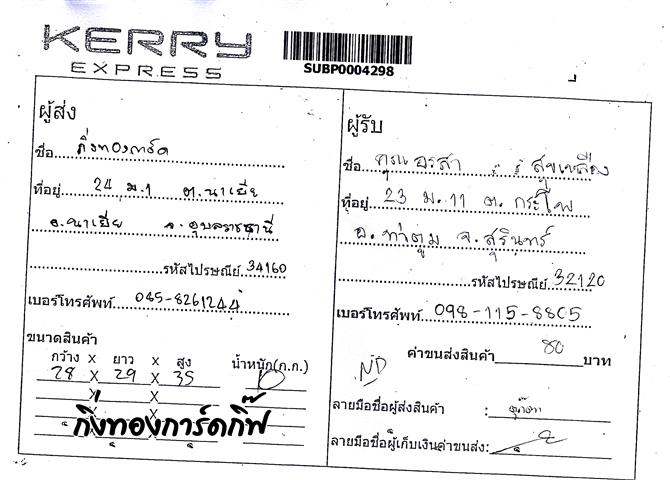 KERRY
EXPRESS
SUBP0004298
ผู้ส่ง
ชื่อ กิ่งทองการ์ด
ที่อยู่ 24 ม.1 ต.นาเยีย
อ.นาเยีย จ.อุบลราชธานี
รหัสไปรษณีย์ 34160
เบอร์โทรศัพท์ 045-8261244
ขนาดสินค้า
กว้าง x ยาว x สูง น้ำหนัก(ก.ก.)
28 X 29 X 35
X X
X X
กิ่งทองการ์ดกิ๊ฟ
ผู้รับ
ชื่อ คุณ อรสา สุขเหลือง
ที่อยู่ 23 ม.11 ต. กระโพ
อ. ท่าตูม จ.สุรินทร์
รหัสไปรษณีย์ 32120
เบอร์โทรศัพท์ 098-115-8805
ค่าขนส่งสินค้า 80 บาท
ND
ลายมือชื่อผู้ส่งสินค้า :
ลายมือชื่อผู้เก็บเงินค่าขนส่ง: